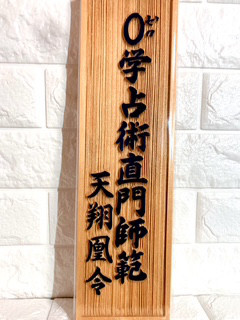 0学占術直門師範
ゼロ
天翔凰令